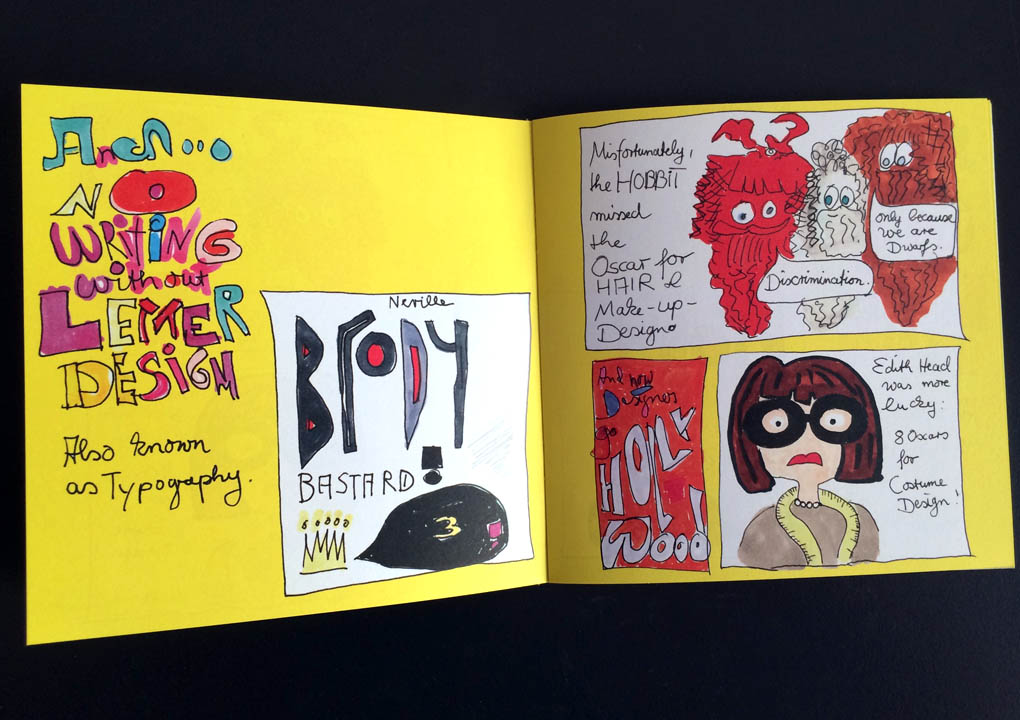 And...
NO
WRITING
without
LETTER
DESIGN
Also known
as Typography.
Neville
BRODY
BASTARD!
3
Misfortunately,
the HOBBIT
missed
the
Oscar for
HAIR &
Make-up-
Design.
only because
we are
Dwarfs.
Discrimination.
And now
Designer
go
HOLLY
WOOD!
Edith Head
was more
lucky:
8 Oscars
for
Costume
Design!